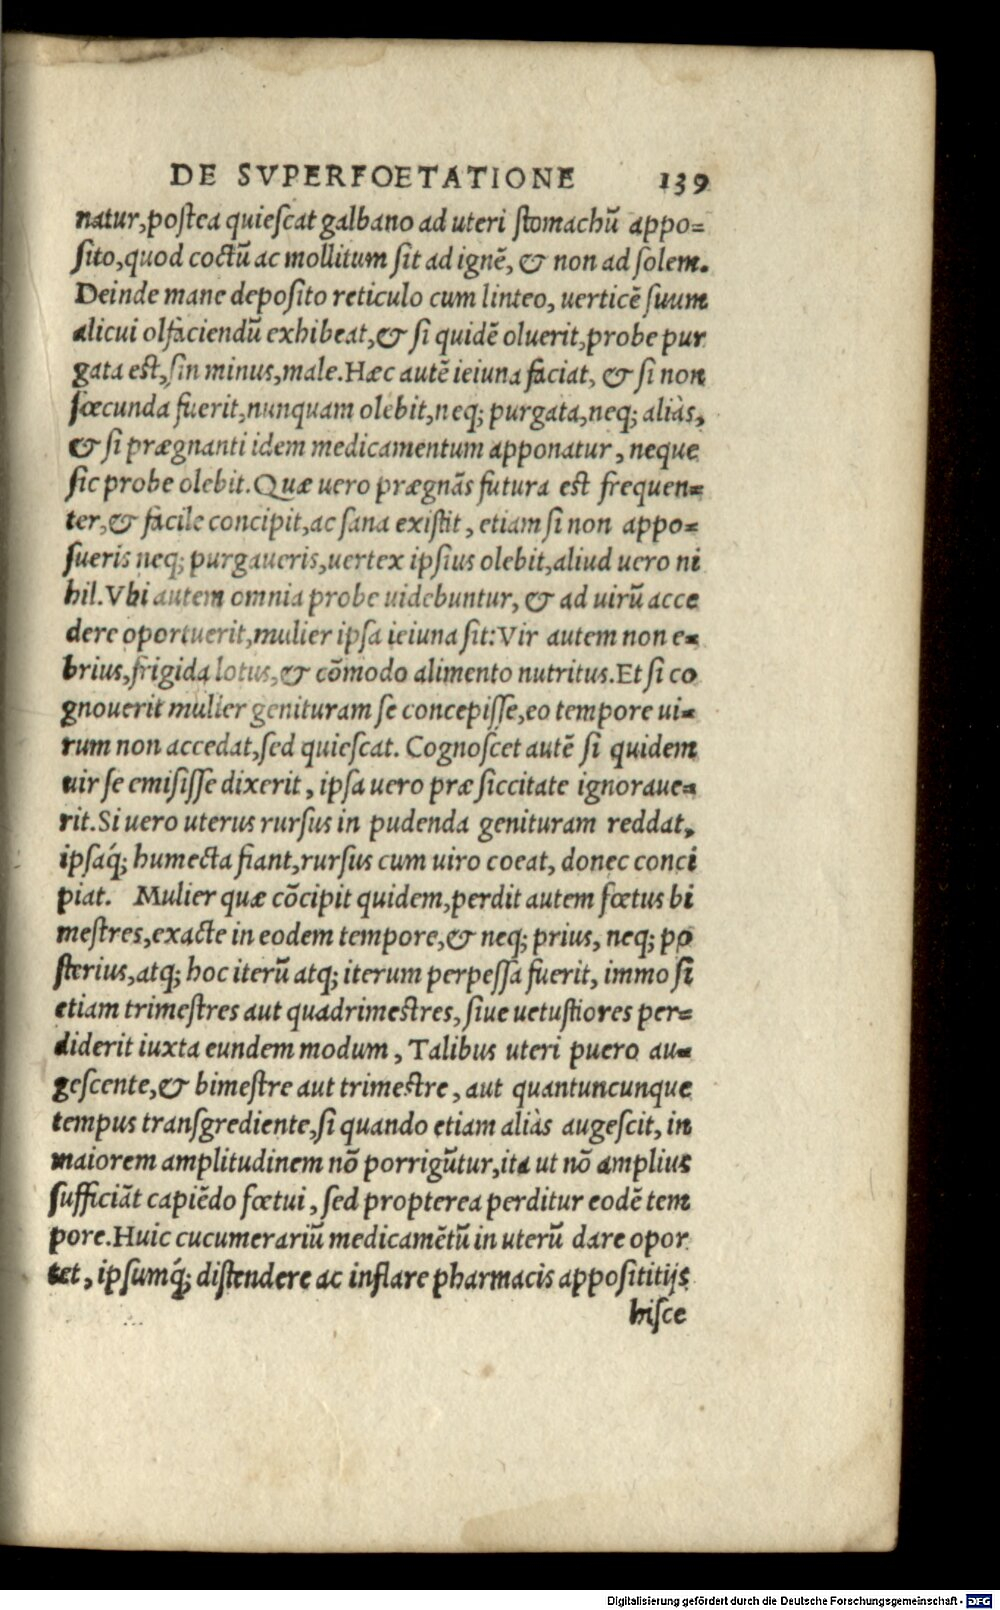 DE SVPERFOETATIONE 139
natur, postea quiescat galbano ad uteri stomachũ appo=
sito, quod coctũ ac mollitum sit ad ignẽ, & non ad solem.
Deinde mane deposito reticulo cum linteo, uerticẽ suum
alicui olfaciendũ exhibeat, & si quidẽ oluerit, probe pur
gata est, sin minus, male. Hæc autẽ ieiuna faciat, & si non
fœcunda fuerit, nunquam olebit, neq; purgata, neq; aliàs,
& si prægnanti idem medicamentum apponatur, neque
sic probe olebit. Quæ uero prægnãs futura est frequen=
ter, & facile concipit, ac sana existit, etiam si non appo=
sueris neq; purgaueris, uertex ipsius olebit, aliud uero ni
hil. Vbi autem omnia probe uidebuntur, & ad uirũ acce
dere oportuerit, mulier ipsa ieiuna sit: Vir autem non e=
brius, frigida lotus, & cõmodo alimento nutritus. Et si co
gnouerit mulier genituram se concepisse, eo tempore ui=
rum non accedat, sed quiescat. Cognoscet autẽ si quidem
uir se emisisse dixerit, ipsa uero præ siccitate ignoraue=
rit. Si uero uterus rursus in pudenda genituram reddat,
ipsaq́; humecta fiant, rursus cum uiro coeat, donec conci
piat. Mulier quæ cõcipit quidem, perdit autem fœtus bi
mestres, exacte in eodem tempore, & neq; prius, neq; po
sterius, atq; hoc iterũ atq; iterum perpessa fuerit, immo si
etiam trimestres aut quadrimestres, siue uetustiores per=
diderit iuxta eundem modum, Talibus uteri puero au=
gescente, & bimestre aut trimestre, aut quantuncunque
tempus transgrediente, si quando etiam aliàs augescit, in
maiorem amplitudinem nõ porrigũtur, ita ut nõ amplius
sufficiãt capiẽdo fœtui, sed propterea perditur eodẽ tem
pore. Huic cucumerariũ medicamẽtũ in uterũ dare opor
tet, ipsumq́; distendere ac inflare pharmacis apposititijs
hisce
Digitalisierung gefördert durch die Deutsche Forschungsgemeinschaft - DFG